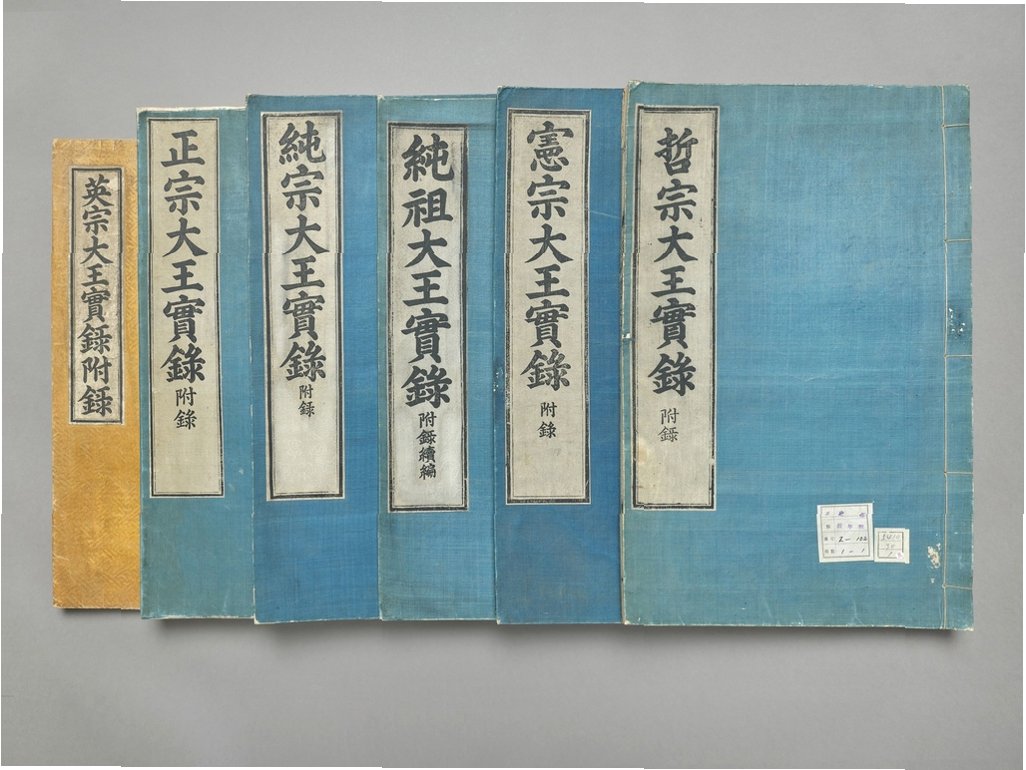 英宗大王實錄附錄
正宗大王實錄
附錄
純宗大王實錄
附錄
純祖大王實錄
附錄續編
憲宗大王實錄
附錄
哲宗大王實錄
附錄